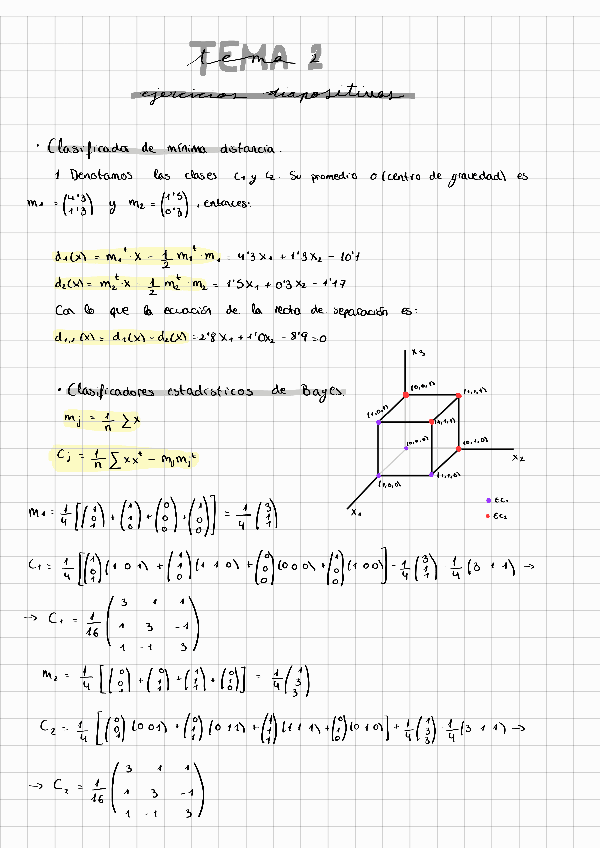 TEMA 2
tema 2
ejercicios diapositivas
· Clasificador de mínima distancia.
1 Denotamos las clases C₁ y C₂. Su promedio o (centro de gravedad) es
m₁ = (4'3 1'3) y m₂ = (1'5 0'3), entonces:
d₁(x) = m₁ᵗ·x - 1/2 m₁ᵗ·m₁ = 4'3x₁ + 1'3x₂ - 10'1
d₂(x) = m₂ᵗ·x 1/2 m₂ᵗ·m₂ = 1'5x₁ + 0'3x₂ - 1'17
Con lo que la ecuación de la recta de separación es:
d₁,₂(x) = d₁(x) - d₂(x) = 2'8x₁ + 1'0x₂ - 8'9 = 0
· Clasificadores estadísticos de Bayes.
mⱼ = 1/n ∑x
Cⱼ = 1/n ∑xxᵗ - mⱼmⱼᵗ
x₃
(0,0,1)
(1,0,1)
(1,1,1)
(0,0,0)
(0,1,0)
(1,0,0)
(1,1,0)
x₂
x₁
∈C₁
∈C₂
m₁ = 1/4 [(1 0 1) + (1 1 0) + (0 0 0) + (1 0 0)] = 1/4 (3 1 1)
C₁ = 1/4 [(1 0 1)(1 0 1) + (1 1 0)(1 1 0) + (0 0 0)(0 0 0) + (1 0 0)(1 0 0)] - 1/4 (3 1 1) 1/4 (3 1 1) →
→ C₁ = 1/16 (3 1 1
1 3 -1
1 -1 3)
m₂ = 1/4 [(0 0 1) + (0 1 1) + (1 1 1) + (0 1 0)] = 1/4 (1 3 3)
C₂ = 1/4 [(0 0 1)(0 0 1) + (0 1 1)(0 1 1) + (1 1 1)(1 1 1) + (0 1 0)(0 1 0)] + 1/4 (1 3 3) · 1/4 (3 1 1) →
→ C₂ = 1/16 (3 1 1
1 3 -1
1 -1 3)